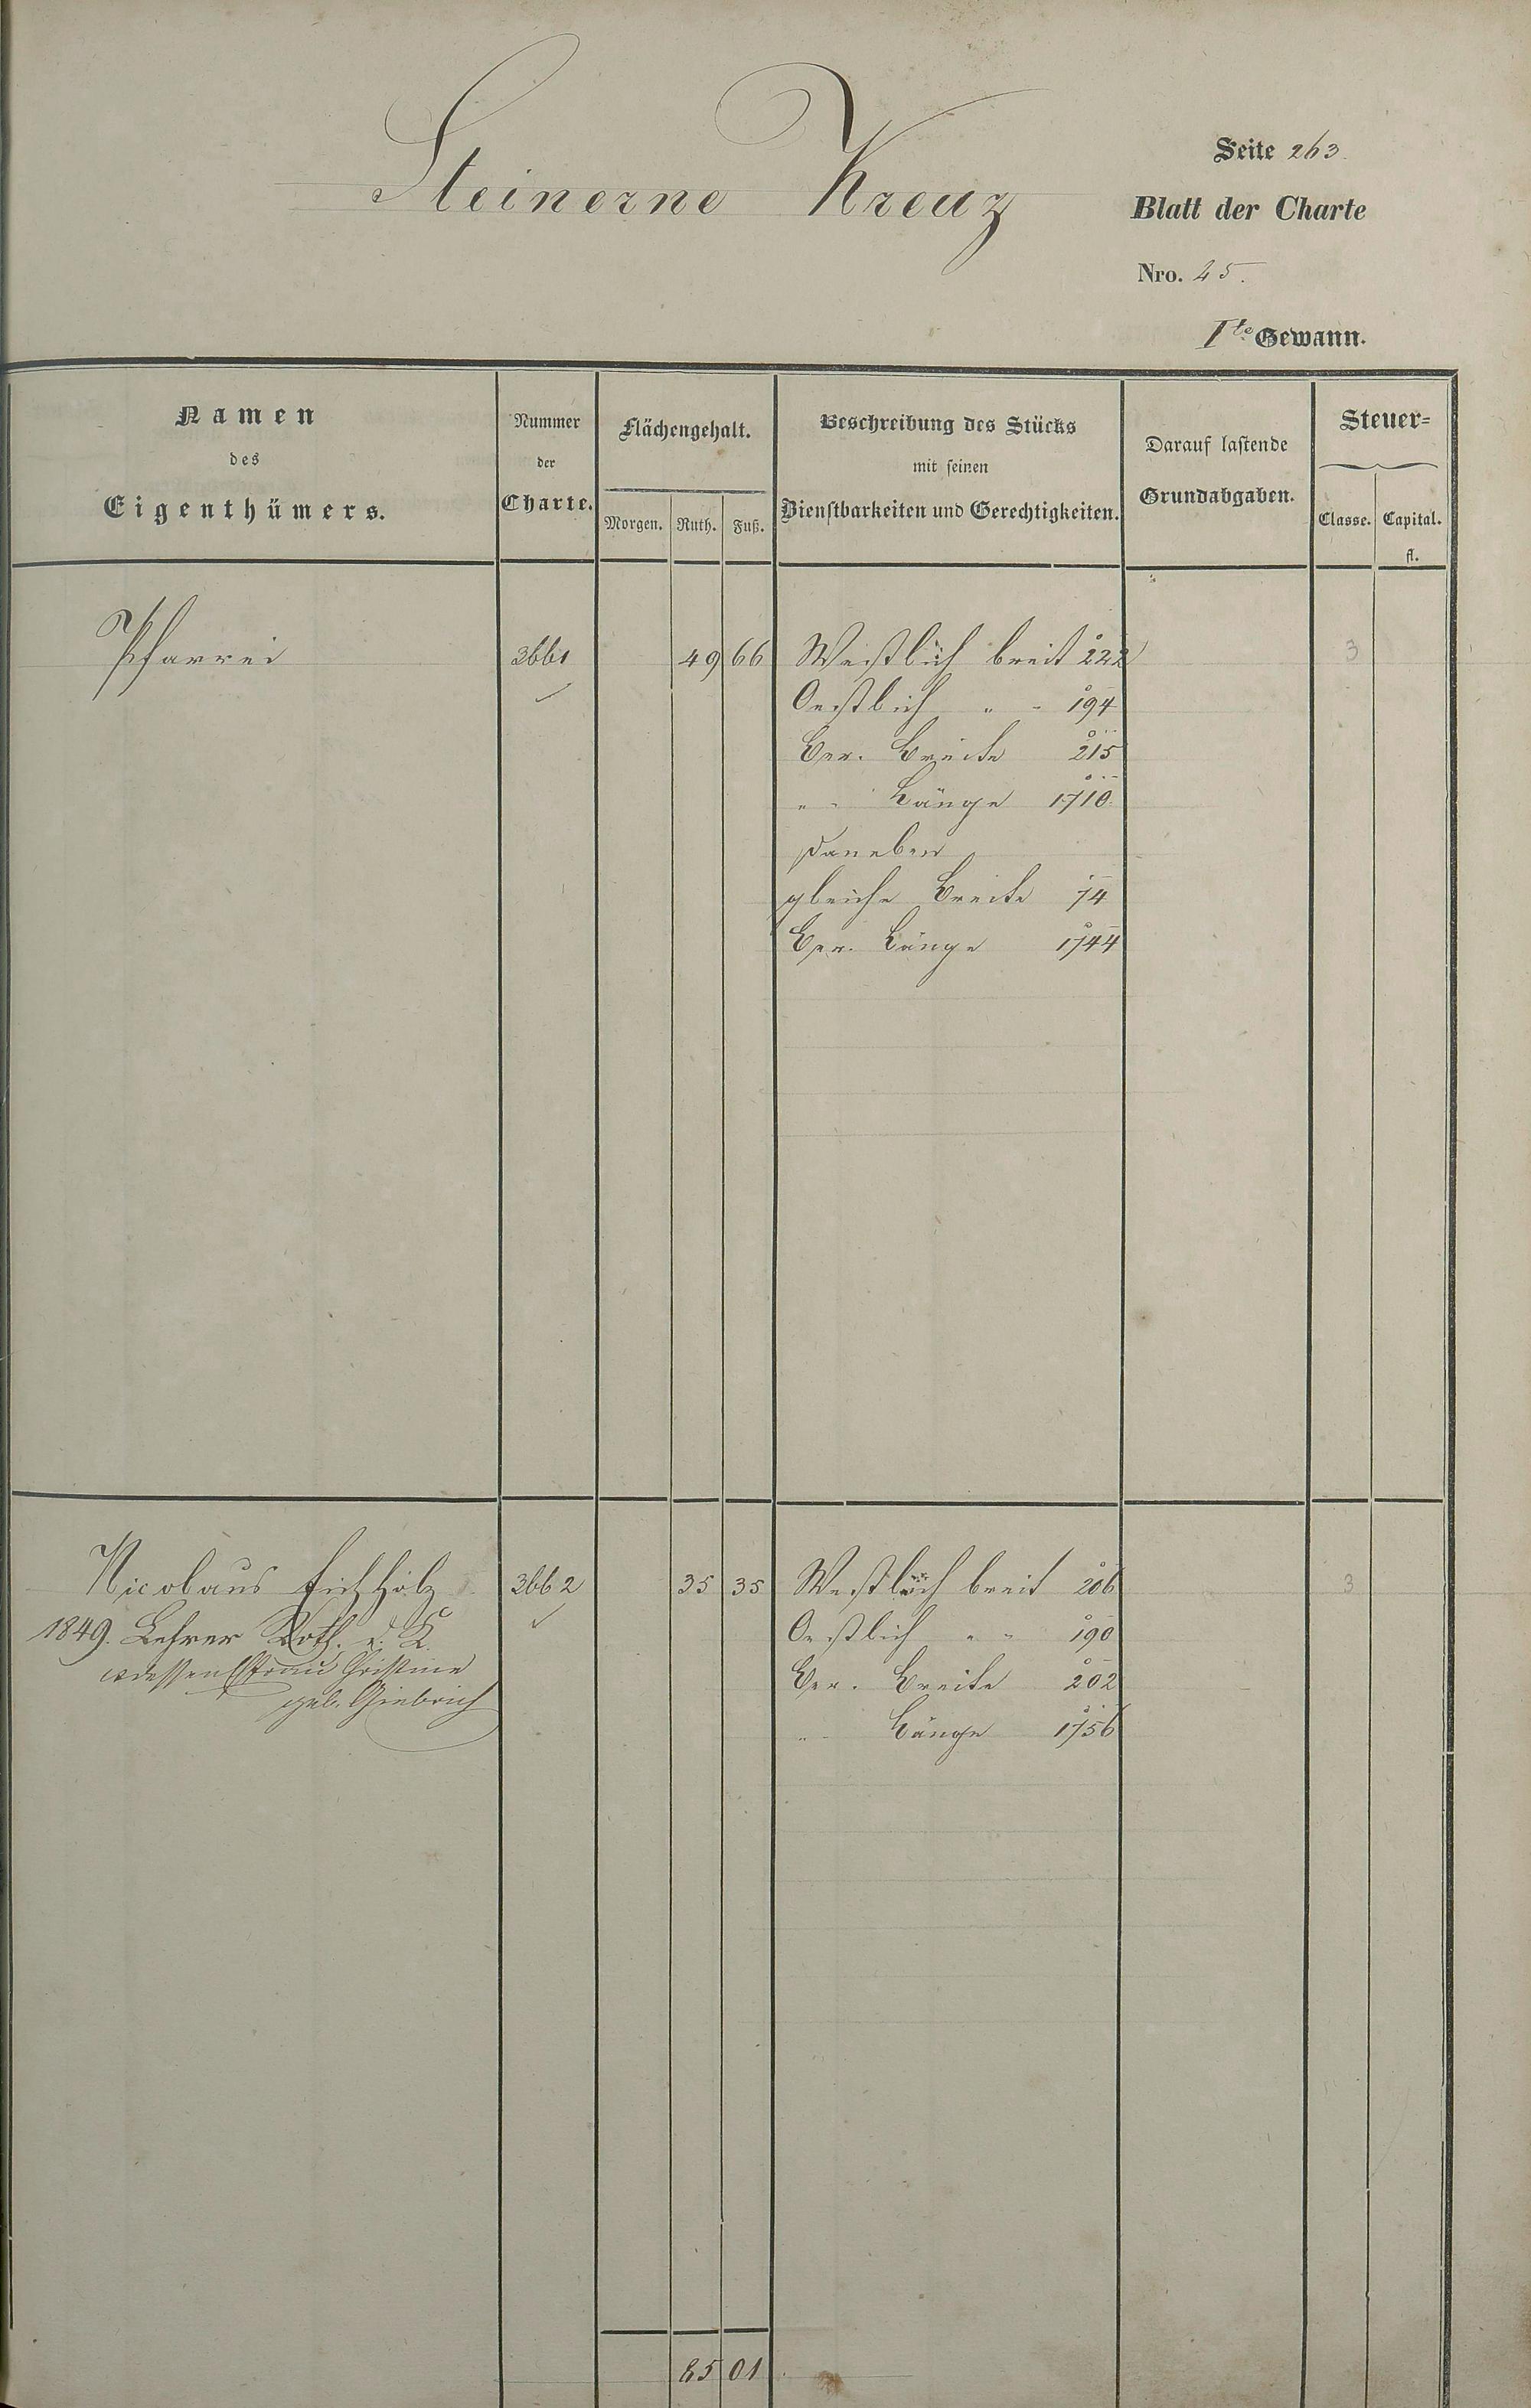 Steinerne Kreuz
Seite 263.
Blatt der Charte
Nro. 45.
Ite Gewann.
Namen
des
Eigenthümers.
Nummer
der
Charte.
Flächengehalt.
Morgen. Ruth. Fuß.
Beschreibung des Stücks
mit seinen
Dienstbarkeiten und Gerechtigkeiten.
Darauf lastende
Grundabgaben.
Steuer-
Classe. Capital.
fl.
Pfarrei 3661 49 66 Westlich breit 222 3
Oestlich " " 194
Ber. Breite 215
" " Länge 1710
Daneben
gleiche Breite 74
Ber. Länge 1744
Nicolaus Eichholz 3662 35 35 Westlich breit 206 3
1849. Lehrer Roth. Oestlich " " 190
dessen Frau Christine Ber. Breite 202
geb. " Länge 1756
85 01